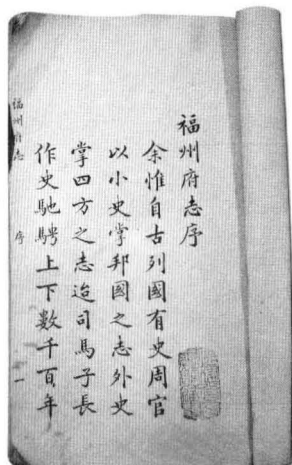 福州府志序
余惟自古列國有史周官
以小史掌邦國之志外史
掌四方之志迨司馬子長
作史馳騁上下數千百年
福州府志 序 一